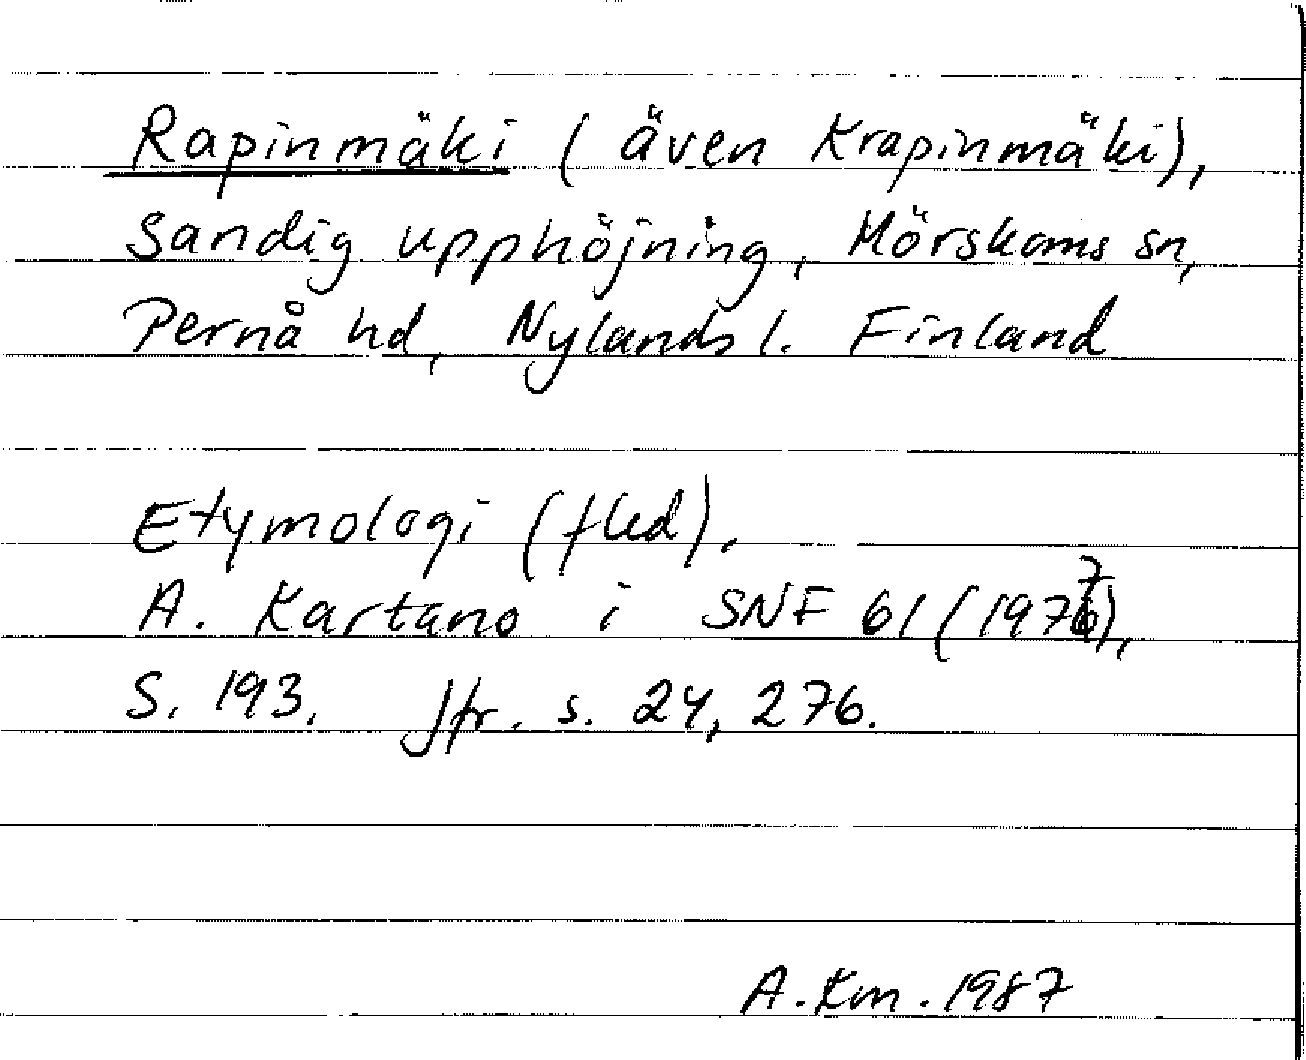 Rapinmäki (även Krapinmäki),
Sandig upphöjning, Mörskoms sn,
Pernå hd, Nylands l. Finland
Etymologi (fled).
A. Kartano i SNF 61 (1977),
S. 193. Jfr. s. 24, 276.
A. Km. 1987